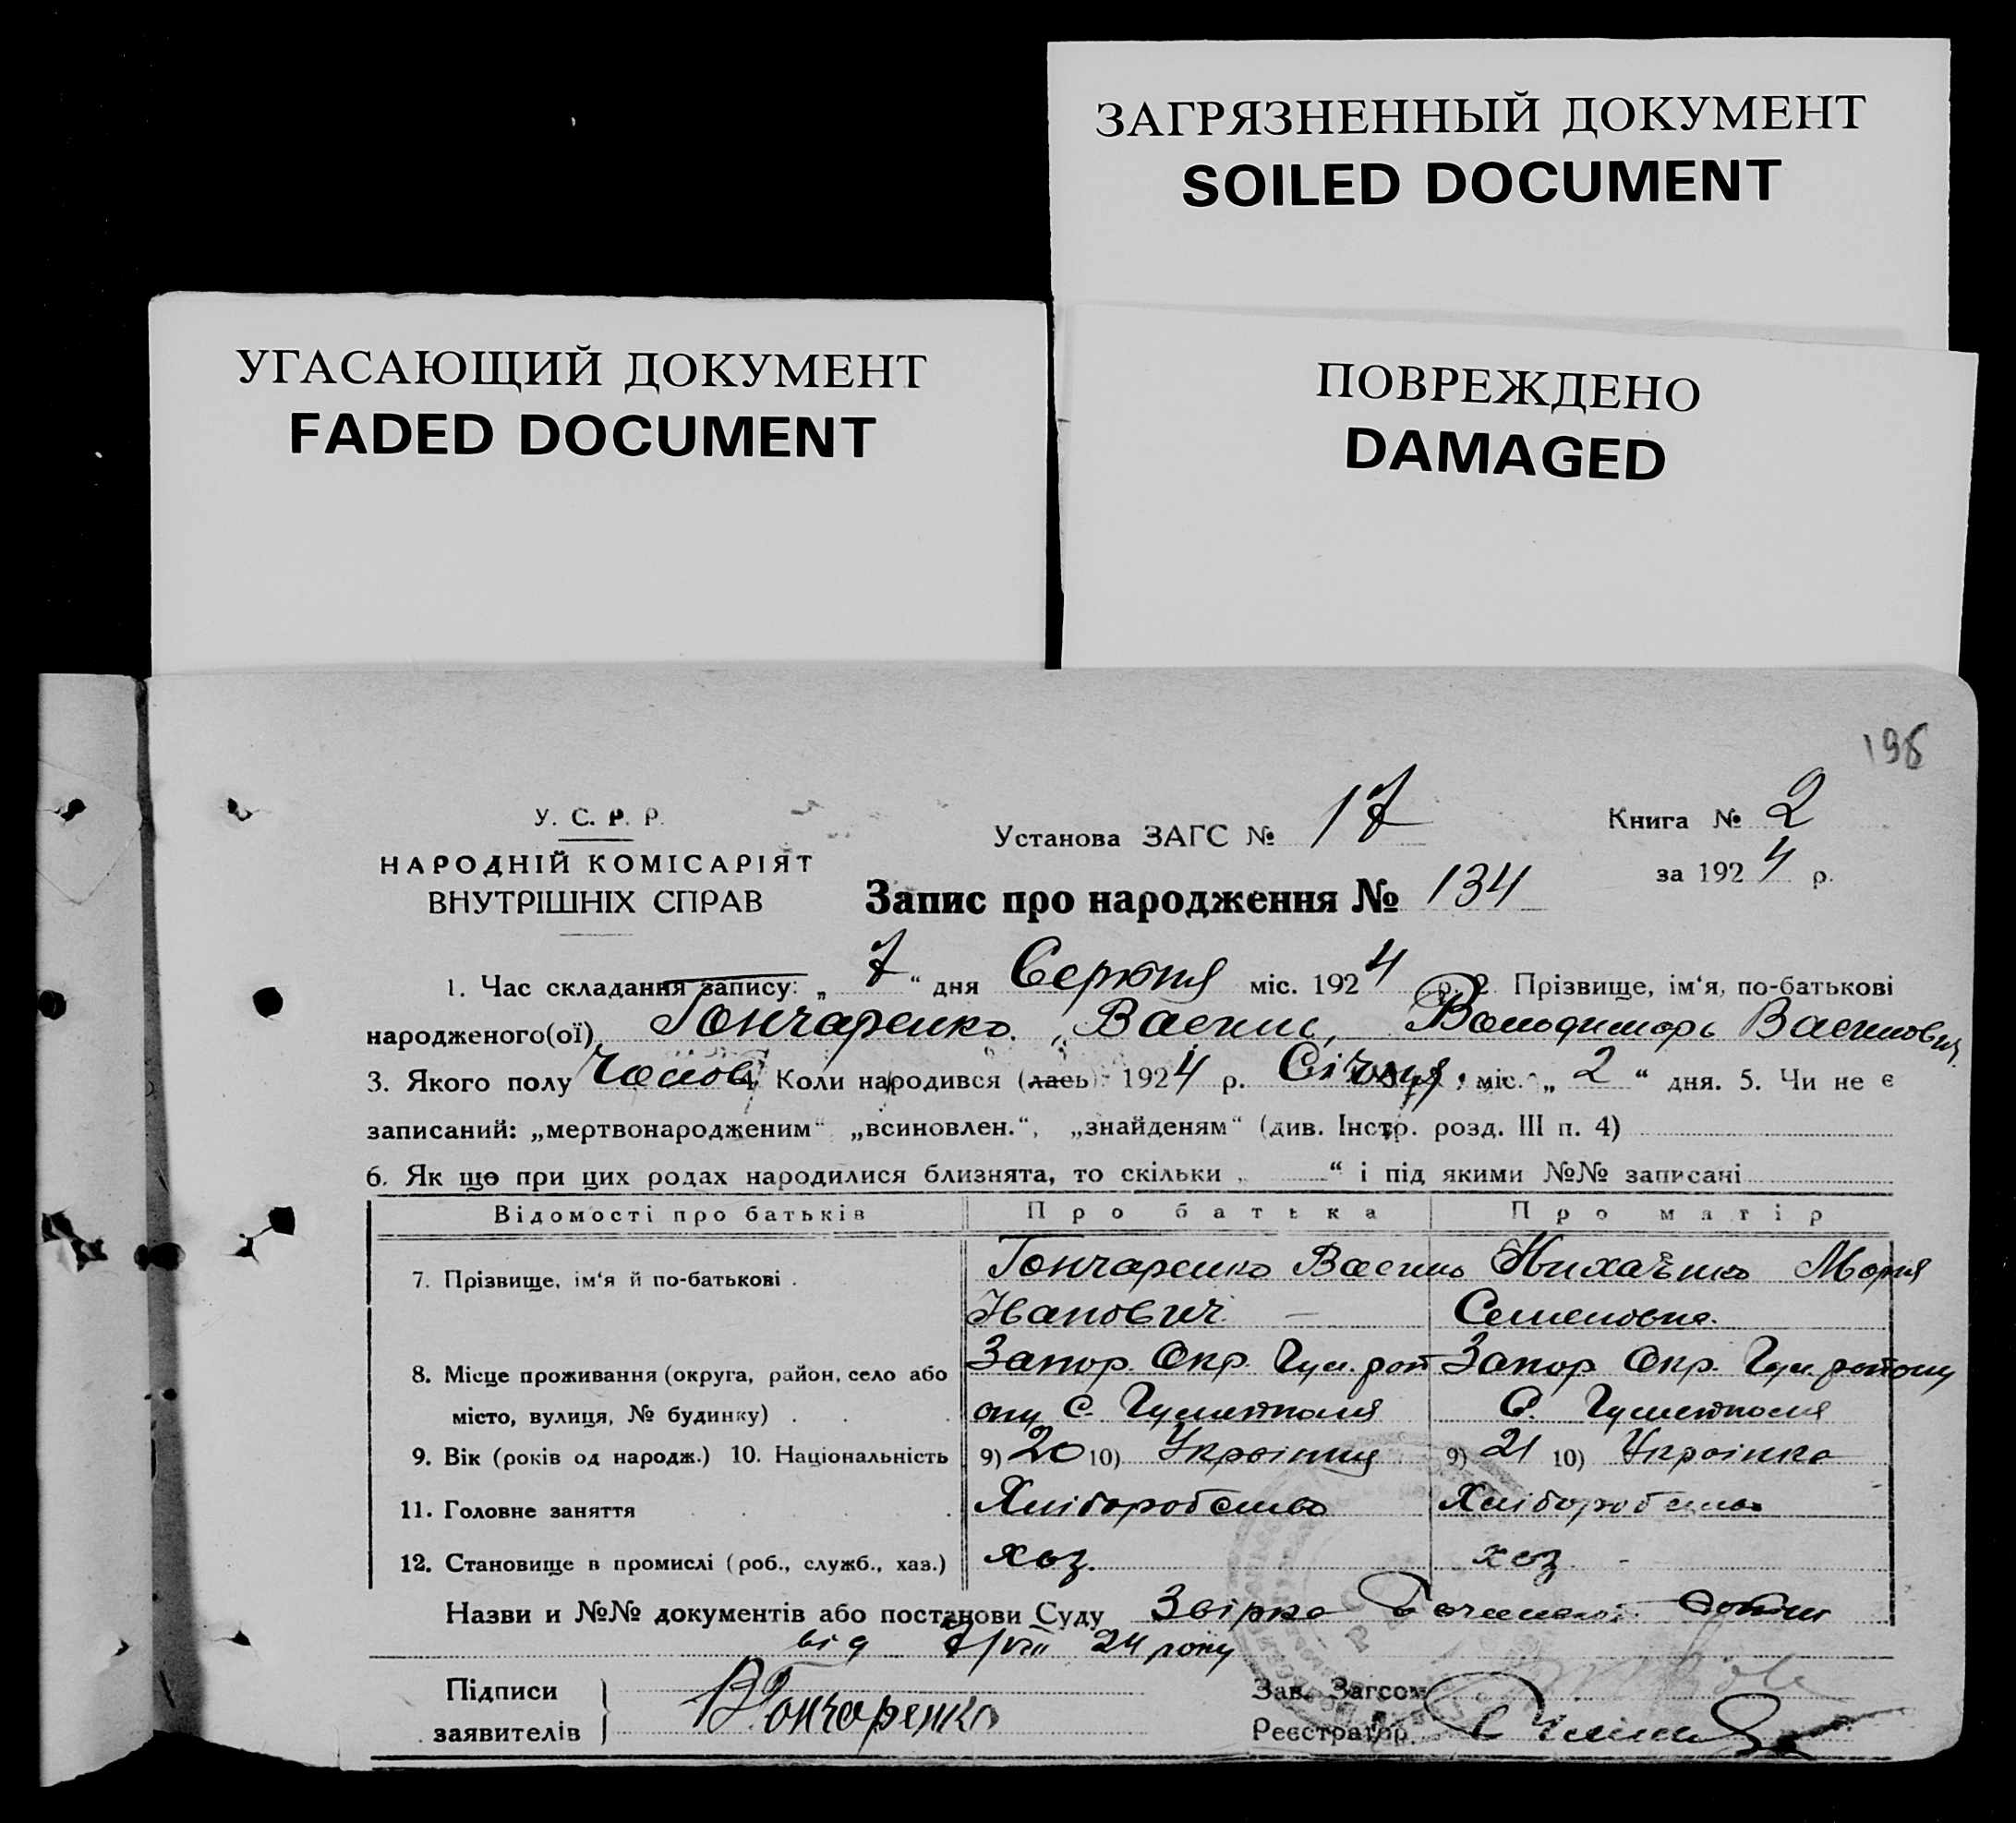 ЗАГРЯЗНЕННЫЙ ДОКУМЕНТ
SOILED DOCUMENT
УГАСАЮЩИЙ ДОКУМЕНТ
FADED DOCUMENT
ПОВРЕЖДЕНО
DAMAGED
198
У. С. Р. Р.
НАРОДНІЙ КОМІСАРІЯТ
ВНУТРІШНІХ СПРАВ
Установа ЗАГС № 17
Книга № 2
за 1924 р.
Запис про народження № 134
1. Час складання запису: „ 7 “ дня Серпня міс. 1924 р. 2. Прізвище, ім‘я, по-батькові
народженого(ої) Гончаренко Володимирь
3. Якого полу Чолов 4. Коли народився (лась) 1924 р. Січня міс. „ 2 “ дня. 5. Чи не є
записаний: „мертвонародженим“ „всиновлен.“, „знайденям“ (див. Інстр. розд. III п. 4)
6. Як що при цих родах народилися близнята, то скільки „ “ і під якими №№ записані
Відомості про батьків Про батька Про матір
7. Прізвище, ім‘я й по-батькові . Гончаренко Василь Мария
Іванович Семеновна.
8. Місце проживання (округа, район, село або Запор. Окр. Гул. рай Запор Окр. Гул. району
місто, вулиця, № будинку) . ону С. Гуляйполя С. Гуляйполя
9. Вік (років од народж.) 10. Національність 9) 20 10) Українец 9) 21 10) Українка
11. Головне заняття Хліборобство Хліборобство
12. Становище в промислі (роб., служб., хаз.) хоз. хоз.
Назви и №№ документів або постанови Суду
від 7/VIII 24 року
Підписи
заявителів
В Гончаренко
Зав. Загсом
Реєстратор